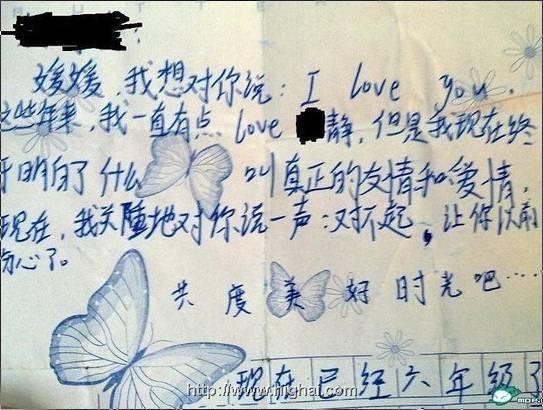 媛媛,我想对你说:I love you.
这些年来,我一直有点love 静,但是我现在终
于明白了什么叫真正的友情和爱情.
现在,我关隆地对你说一声:对不起,让你以前
伤心了。
共度美好时光吧……
现在已经六年级了
http://www.highai.com
MOP.